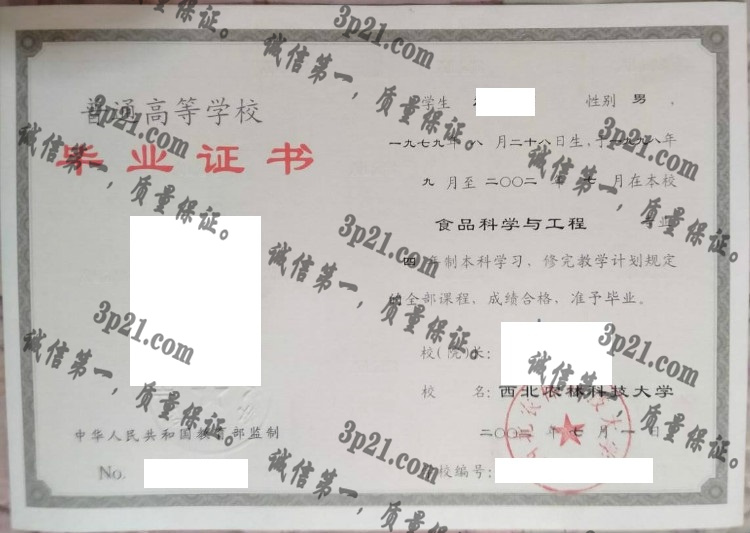 普通高等学校
毕业证书
中华人民共和国教育部监制
No.
学生 性别 男，
一九七九年八月二十八日生，于一九九八年
九月至二〇〇二年七月在本校
食品科学与工程 专业
四年制本科学习，修完教学计划规定
的全部课程，成绩合格，准予毕业。
校(院)长：
校 名：西北农林科技大学
二〇〇二年七月一日
学校编号：
3p21.com
诚信第一，质量保证。
3p21.com
诚信第一，质量保证。
3p21.com
诚信第一，质量保证。
3p21.com
诚信第一，质量保证。
3p21.com
诚信第一，质量保证。
3p21.com
诚信第一，质量保证。
3p21.com
诚信第一，质量保证。
3p21.com
诚信第一，质量保证。